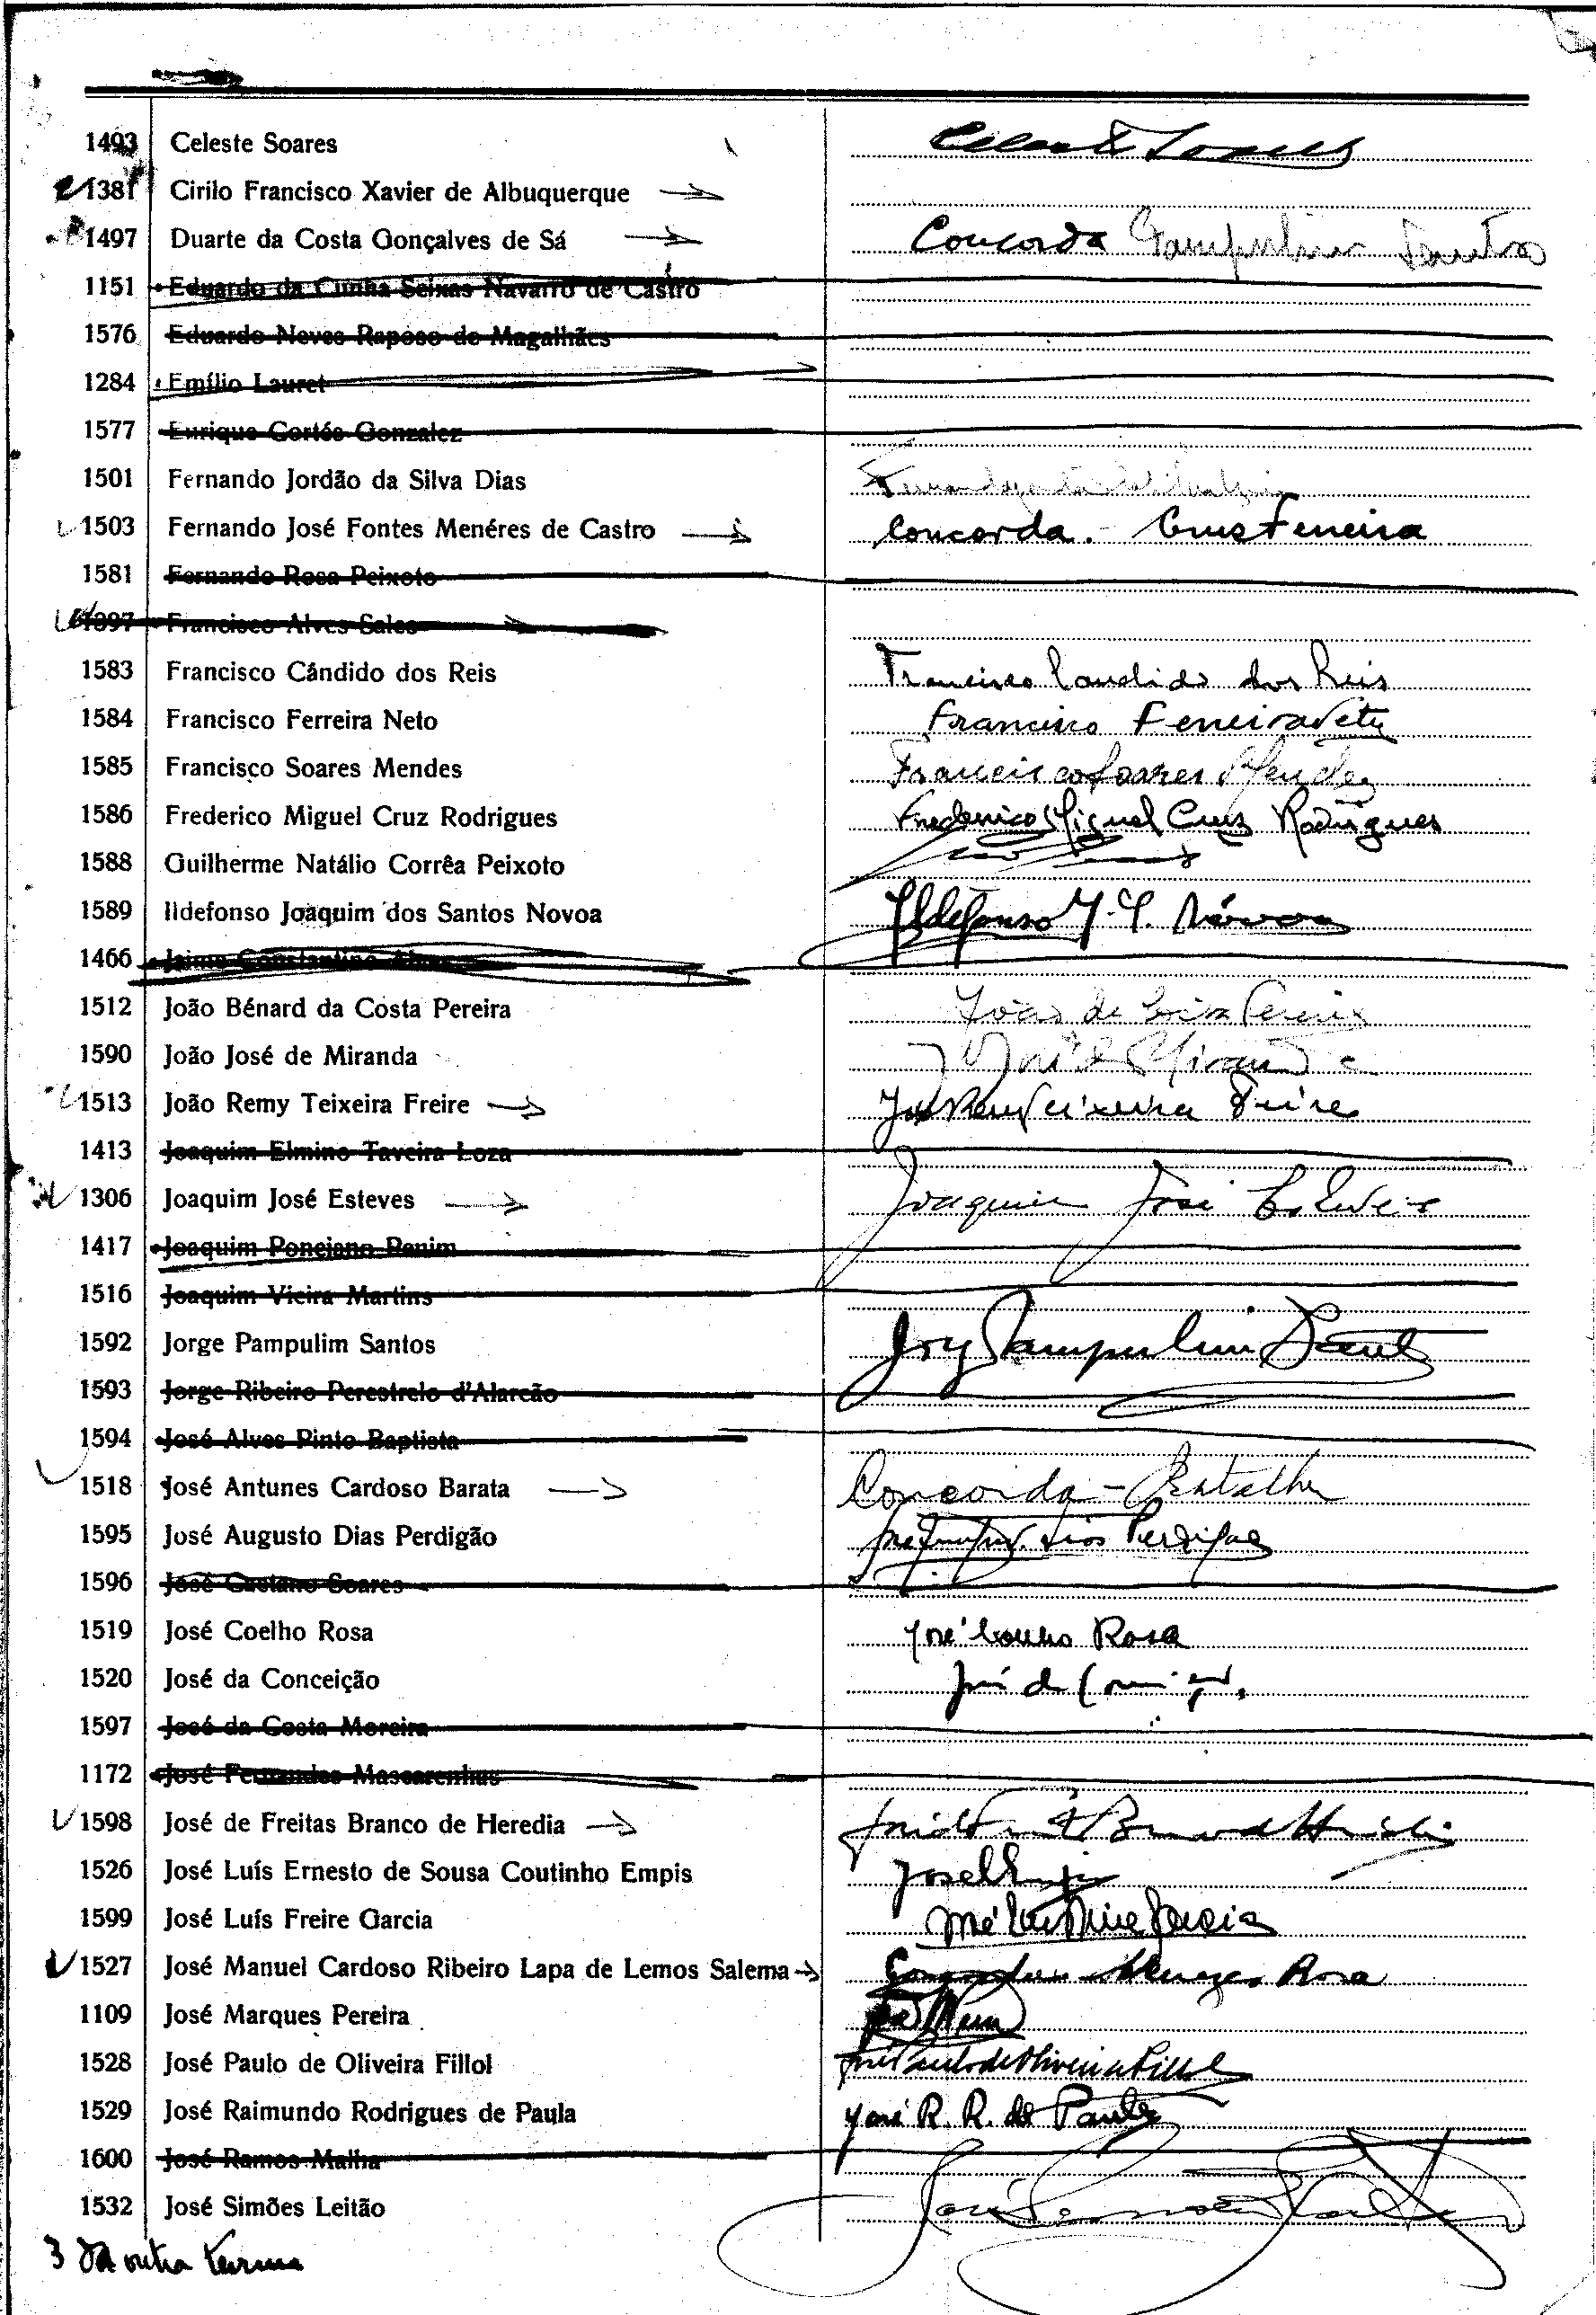 1493 Celeste Soares Celeste Soares
1381 Cirilo Francisco Xavier de Albuquerque
1497 Duarte da Costa Gonçalves de Sá Concorda Pampulim Santos
1151 Eduardo da Cunha Seixas Navarro de Castro
1576 Eduardo Neves Raposo de Magalhães
1284 Emílio Lauret
1577 Enrique Cortés Gonzalez
1501 Fernando Jordão da Silva Dias
1503 Fernando José Fontes Menéres de Castro Concorda. - Cruz Ferreira
1581 Fernando Rosa Peixoto
1397 Francisco Alves Sales
1583 Francisco Cândido dos Reis Francisco Candido dos Reis
1584 Francisco Ferreira Neto Francisco Ferreira Neto
1585 Francisco Soares Mendes Francisco Soares Mendes
1586 Frederico Miguel Cruz Rodrigues Frederico Miguel Cruz Rodrigues
1588 Guilherme Natálio Corrêa Peixoto
1589 Ildefonso Joaquim dos Santos Novoa Ildefonso J. S. Nóvoa
1466 Jaime Constantino Alves
1512 João Bénard da Costa Pereira João da Costa Pereira
1590 João José de Miranda J José de Miranda
1513 João Remy Teixeira Freire João Remy Teixeira Freire
1413 Joaquim Elmino Taveira Loza
1306 Joaquim José Esteves Joaquim José Esteves
1417 Joaquim Ponciano Panim
1516 Joaquim Vieira Martins
1592 Jorge Pampulim Santos Jorge Pampulim Santos
1593 Jorge Ribeiro Perestrelo d'Alarcão
1594 José Alves Pinto Baptista
1518 José Antunes Cardoso Barata Concorda -
1595 José Augusto Dias Perdigão José Augusto Dias Perdigão
1596 José Caetano Soares
1519 José Coelho Rosa José Coelho Rosa
1520 José da Conceição José da Conceição
1597 José da Costa Moreira
1172 José Fernandes Mascarenhas
1598 José de Freitas Branco de Heredia
1526 José Luís Ernesto de Sousa Coutinho Empis José L Empis
1599 José Luís Freire Garcia José Luís Freire Garcia
1527 José Manuel Cardoso Ribeiro Lapa de Lemos Salema Menezes Rosa
1109 José Marques Pereira
1528 José Paulo de Oliveira Fillol José Paulo de Oliveira Fillol
1529 José Raimundo Rodrigues de Paula José R. R. de Paula
1600 José Ramos Malha
1532 José Simões Leitão José Simões Leitão
3 da outra turma